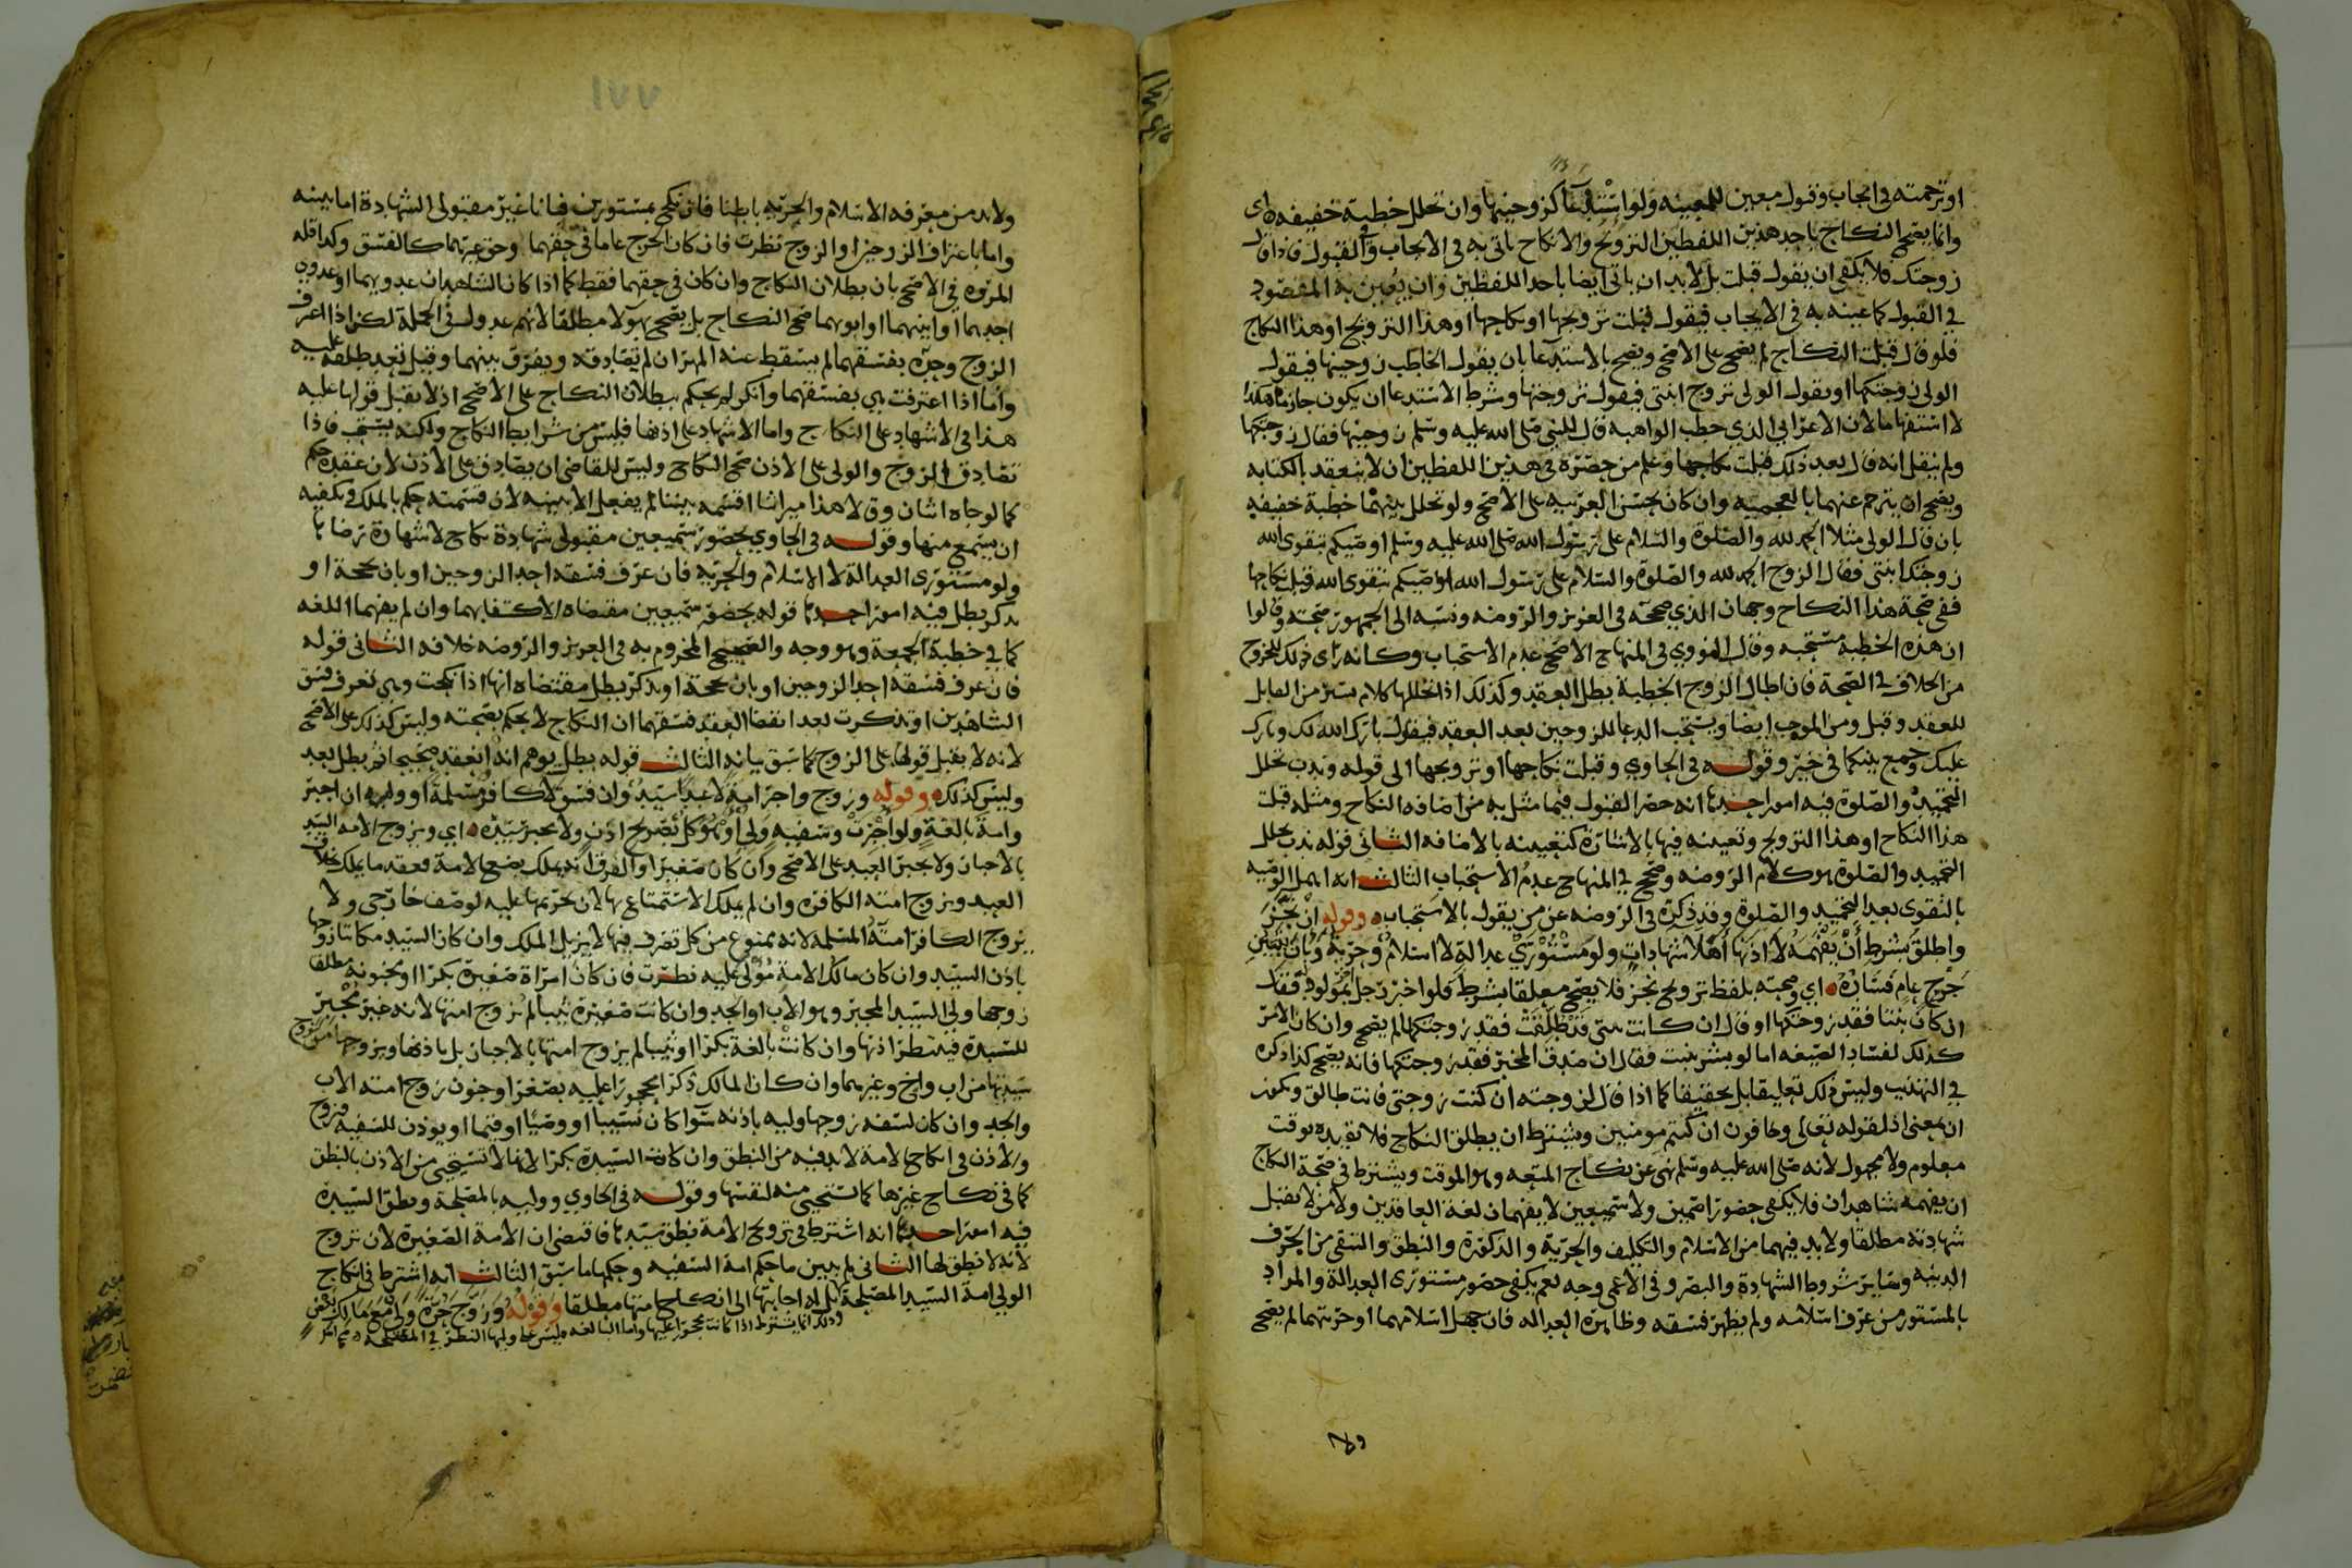 او ترجمته في ايجاب وقبول معين لمعينه ولو استدعا كزوجنيها وان تخلل خطبة خفيفه اى
وانما يصح النكاح باحد هذين اللفظين التزويج والانكاح ياتى به في الايجاب وفي القبول فاذا قال
زوجتك فلا يكفى ان يقول قبلت بل لابد ان ياتى ايضا باحد اللفظين وان يعين به المقصود
في القبول كما عينه به في الايجاب فيقول قبلت تزويجها او نكاحها او هذا التزويج او هذا النكاح
فلو قال قبلت النكاح لم يصح على الاصح ويصح بالاستدعا بان يقول الخاطب زوجنيها فيقول
الولى زوجتكها او يقول الولى تزوج ابنتى فيقول تزوجتها وشرط الاستدعا ان يكون جازما هكذا
لا استفهاما لان الاعرابي الذي خطب الواهبه قال للنبي صلى الله عليه وسلم زوجنيها فقال زوجتكها
ولم ينقل انه قال بعد ذلك قبلت نكاحها وعلم من حصره في هذين اللفظين ان لا ينعقد بالكنايه
ويصح ان يترجم عنهما بالعجميه وان كان يحسن العربيه على الاصح ولو تخلل بينهما خطبة خفيفه
بان قال الولى مثلا الحمد لله والصلوة والسلام على رسول الله صلى الله عليه وسلم اوصيكم بتقوى الله
زوجتك ابنتى فقال الزوج الحمد لله والصلوة والسلام على رسول الله اوصيكم بتقوى الله قبلت نكاحها
ففى صحة هذا النكاح وجهان الذي صححه في العزيز والروضه ونسبه الى الجمهور صحته وقالوا
ان هذه الخطبة مستحبه وقال النووي في المنهاج الاصح عدم الاستحباب وكانه راى ذلك للخروج
من الخلاف في الصحة فان اطال الزوج الخطبة بطل العقد وكذلك اذا تخللها كلام يسير من القابل
للعقد وقيل ومن الموجب ايضا ويستحب الدعا للزوجين بعد العقد فيقول بارك الله لك وبارك
عليك وجمع بينكما في خير وقوله في الحاوي وقبلت نكاحها او تزويجها الى قوله وندب تخلل
التحميد والصلوة فيه امور احدها انه حصر القبول فيما مثل به من اضافه النكاح ومثله قبلت
هذا النكاح او هذا التزويج وتعيينه فيها بالاشارة كتعيينه بالاضافه الثانى قوله ندب تخلل
التحميد والصلوة هو كلام الروضه وصحح في المنهاج عدم الاستحباب الثالث انه اهمل الوصيه
بالتقوى بعد التحميد والصلوة وقد ذكره في الروضه عن من يقول بالاستحباب وقوله ان نجز
واطلق بشرط ان يفهمه لا اذنها اهلا شهادات ولو مستوري عدالة لا اسلام وحرية وبان بتبين
جرح عام فساده اي وصحته بلفظ تزويج نجز فلا يصح معلقا بشرط فلو اخبر رجل بمولود فقال
ان كان بنتا فقد زوجتكها او قال ان كانت بنتى قد طلقت فقد زوجتكها لم يصح وان كان الامر
كذلك لفساد الصيغه اما لو بشر ببنت فقال ان صدق المخبر فقد زوجتكها فانه يصح كذا ذكره
في التهذيب وليس ذلك تعليقا بل تحقيقا كما اذا قال لزوجته ان كنت زوجتى فانت طالق وتكون
ان بمعنى اذ لقوله تعالى وخافون ان كنتم مومنين ويشترط ان يطلق النكاح فلا يقيده بوقت
معلوم ولا مجهول لانه صلى الله عليه وسلم نهى عن نكاح المتعه وهو الموقت ويشترط في صحة النكاح
ان يفهمه شاهدان فلا يكفى حضور اصمين ولا سميعين لا يفهمان لغة العاقدين ولا من لا تقبل
شهادته مطلقا ولابد فيهما من الاسلام والتكليف والحرية والذكورة والنطق والتقى من الحرف
الدنيه وساير شروط الشهادة والبصر وفى الاعمى وجه نعم يكفى حضور مستورى العدالة والمراد
بالمستور من عرف اسلامه ولم يظهر فسقه وظاهره العداله فان جهل اسلامهما او حريتهما لم يصح
ولا
١٧٧
ولابد من معرفه الاسلام والحريه باطنا فان نكح بمستورين فبانا غير مقبولى الشهادة اما ببينه
واما باعتراف الزوجين او الزوج نظرت فان كان الجرح عاما في حقهما وحق غيرهما كالفسق وكذا قله
المروه في الاصح بان بطلان النكاح وان كان في حقهما فقط كما اذا كان الشاهدان عدويهما او عدوى
احدهما او ابنيهما او ابويهما صح النكاح بل يصح بهولا مطلقا لانهم عدول في الجملة لكن اذا اعترف
الزوج وحده بفسقهما لم يسقط عنه المهر ان لم تصادقه ويفرق بينهما وقيل تعد طلقة عليه
واما اذا اعترفت هي بفسقهما وانكر لم يحكم ببطلان النكاح على الاصح اذ لا يقبل قولها عليه
هذا في الاشهاد على النكاح واما الاشهاد على اذنها فليس من شرايط النكاح ولكنه يستحب فاذا
تصادق الزوج والولى على الاذن صح النكاح وليس للقاضى ان يصادق على الاذن لان عقده حكم
كما لو جاه اثنان وقالا هذا ميراثنا اقسمه بيننا لم يفعل الا ببينه لان قسمته حكم بالملك ويكفيه
ان يسمع منها وقوله في الحاوي بحضور سميعين مقبولى شهادة نكاح لا شهادة رضاها
ولو مستورى العدالة لا الاسلام والحريه فان عرف فسقه احد الزوجين او بان بحجة او
تذكر بطل فيه امور احدها قوله بحضور سميعين مقتضاه الاكتفا بهما وان لم يفهما اللغه
كما في خطبة الجمعة وهو وجه والصحيح المجزوم به في العزيز والروضه خلافه الثانى قوله
فان عرف فسقه احد الزوجين او بان بحجة او تذكر بطل مقتضاه انها اذا نكحت وهى تعرف فسق
الشاهدين او تذكرت بعد انقضا العقد فسقهما ان النكاح لا يحكم بصحته وليس كذلك على الاصح
لانه لا يقبل قولها على الزوج كما سبق بيانه الثالث قوله بطل يوهم انه انعقد صحيحا ثم بطل بعد
وليس كذلك وقوله وزوج واجبر امة لا عبدا سيد وان فسق لا كافر مسلمة او وليه ان اجبر
وامة بالغة ولو اجبرت وسفيه ولى او موكل بصريح اذن ولا يجبر سيده اي ويزوج الامه السيد
بالاجبار ولا يجبر العبد على الاصح وان كان صغيرا والفرق انه يملك بضع الامة فعقد ما يملك بخلاف
العبد ويزوج امته الكافره وان لم يملك الاستمتاع بها لان تحريمها عليه لوصف خارجى ولا
يزوج الكافر امته المسلمه لانه ممنوع من كل تصرف فيها لا يزيل الملك وان كان السيد مكاتبا زوجها
باذن السيد وان كان مالك الامة مولى عليه نظرت فان كان امراة صغيره بكرا او مجنونة مطلقا
زوجها ولى السيد المجبر وهو الاب او الجد وان كانت صغيرة ثيبا لم تزوج امتها لانه غير مجبر
للسيدة فينتظر اذنها وان كانت بالغة بكرا او ثيبا لم يزوج امتها بالاجبار بل باذنها ويزوجها من يزوج
سيدتها من اب واخ وغيرهما وان كان المالك ذكرا محجورا عليه بصغر او جنون زوج امته الاب
والجد وان كان لسفه زوجها وليه باذنه سوا كان نسيبا او وصيا او قيما او يوذن للسفيه فيزوج
والاذن في انكاح الامة لابد فيه من النطق وان كانت السيدة بكرا لانها لا تستحيى من الاذن بالنطق
كما في نكاح غيرها كما تستحيى منه لنفسها وقوله في الحاوي ووليه بالمصلحة ونطق السيدة
فيه امور احدها انه اشترط في تزويج الامة نطق سيدتها فاقتضى ان الامة الصغيرة لان تزوج
لانه لا نطق لها الثانى لم يبين ما حكم امة السفيه وحكمها ما سبق الثالث انه اشترط في انكاح
الولى امة السيد المصلحة بل له اجابتها الى انكاح امتها مطلقا وقوله وزوج حرة ولى مع مالك بعض
وذلك انما يشترط اذا كانت محجورا عليها واما البالغه فليس على وليها النظر في المصلحه